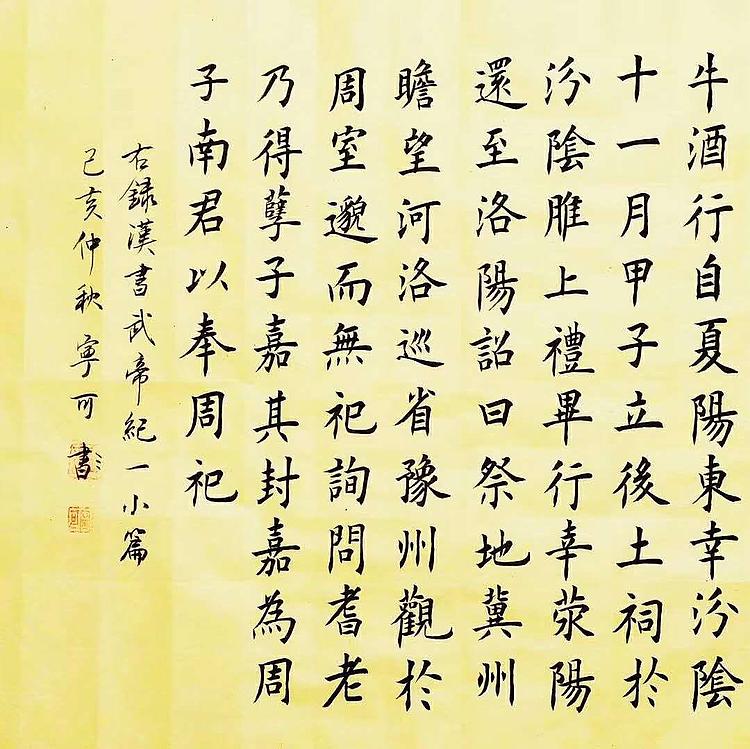 牛酒行自夏陽東幸汾陰
十一月甲子立後土祠於
汾陰脽上禮畢行幸滎陽
還至洛陽詔曰祭地冀州
瞻望河洛巡省豫州觀於
周室邈而無祀詢問耆老
乃得孽子嘉其封嘉為周
子南君以奉周祀
右録漢書武帝紀一小篇
己亥仲秋寧可書